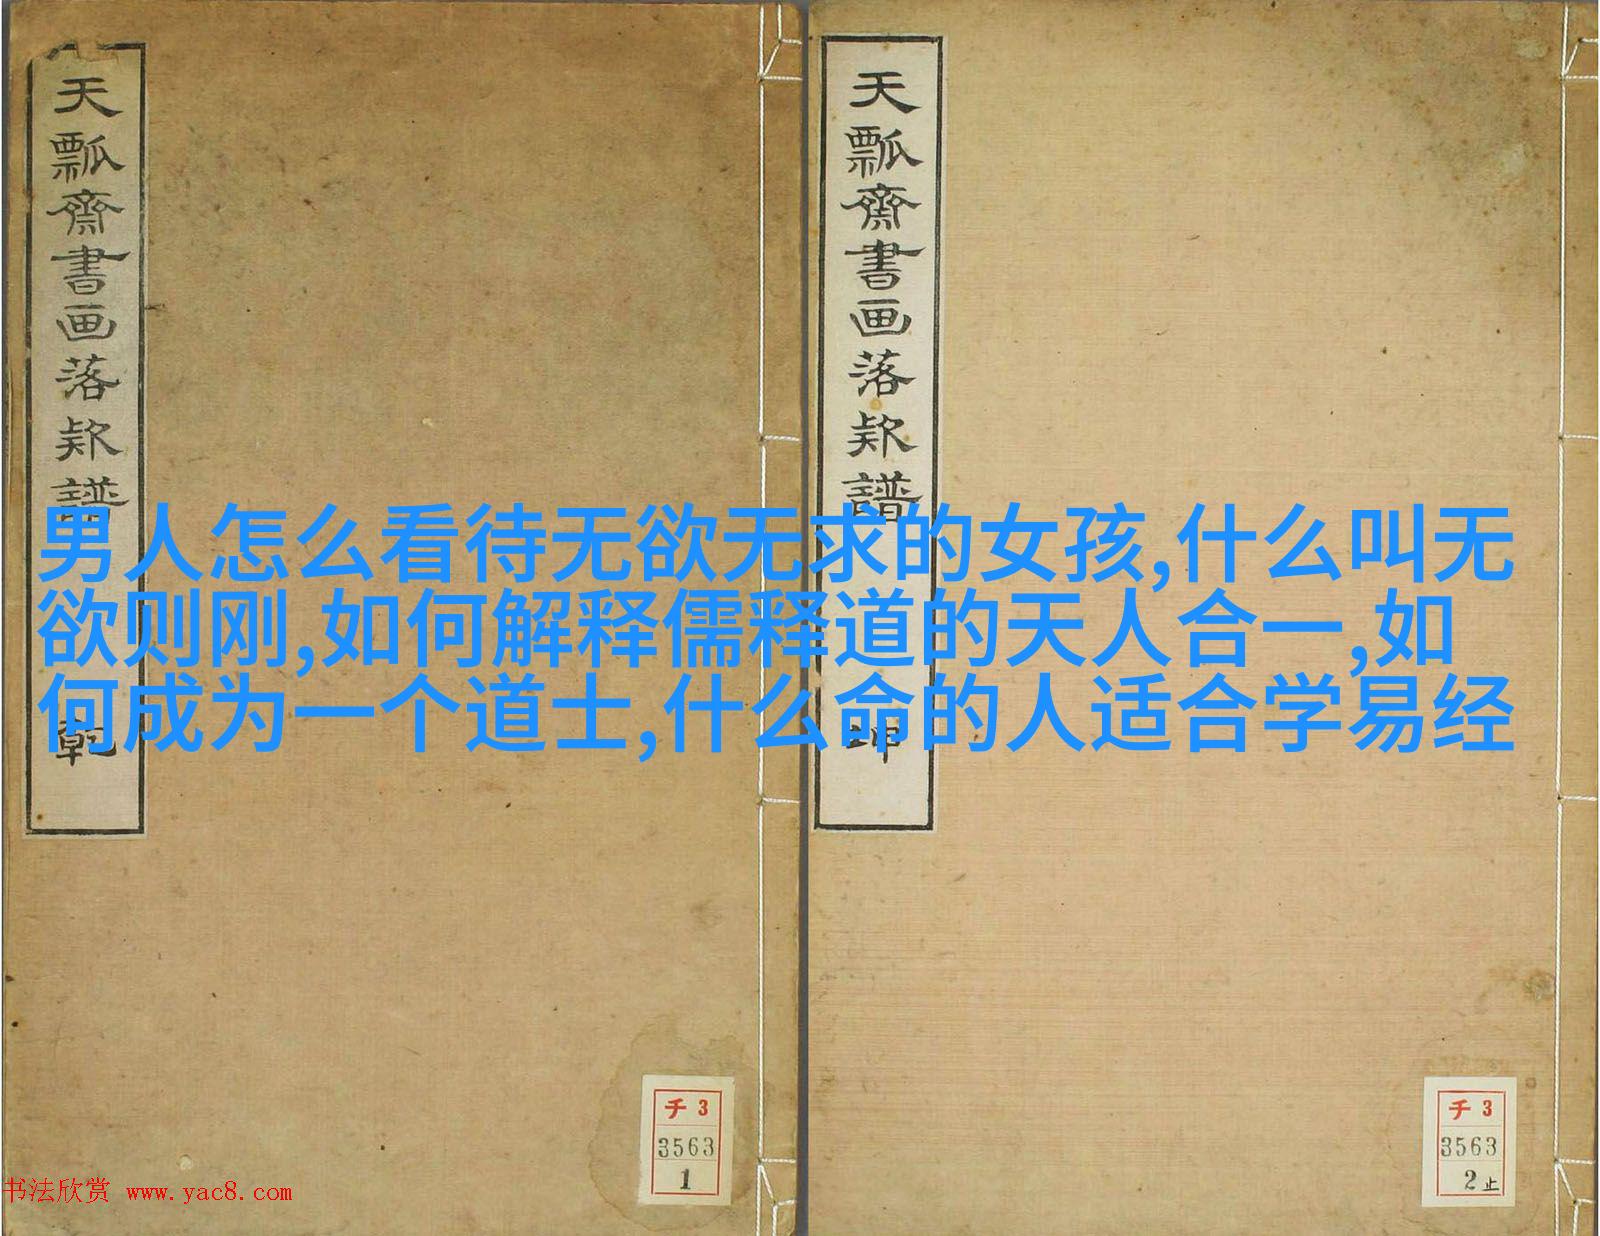 天瓢齋書画落欵譜 乾
天瓢齋書画落欵譜 坤
男人怎么看待无欲无求的女孩,什么叫无
欲则刚,如何解释儒释道的天人合一,如
何成为一个道士,什么命的人适合学易经
チ3
3563
1
チ3
3563
2止
书法欣赏 www.yac8.com